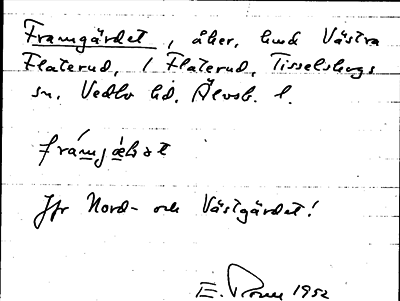 Framgärdet, åker, hmd Västra
Flaterud, / Flaterud, Tisselskogs
sn, Vedbo hd, Älvsb. l.
Jfr Nord- och Västgärdet!
E. 1952